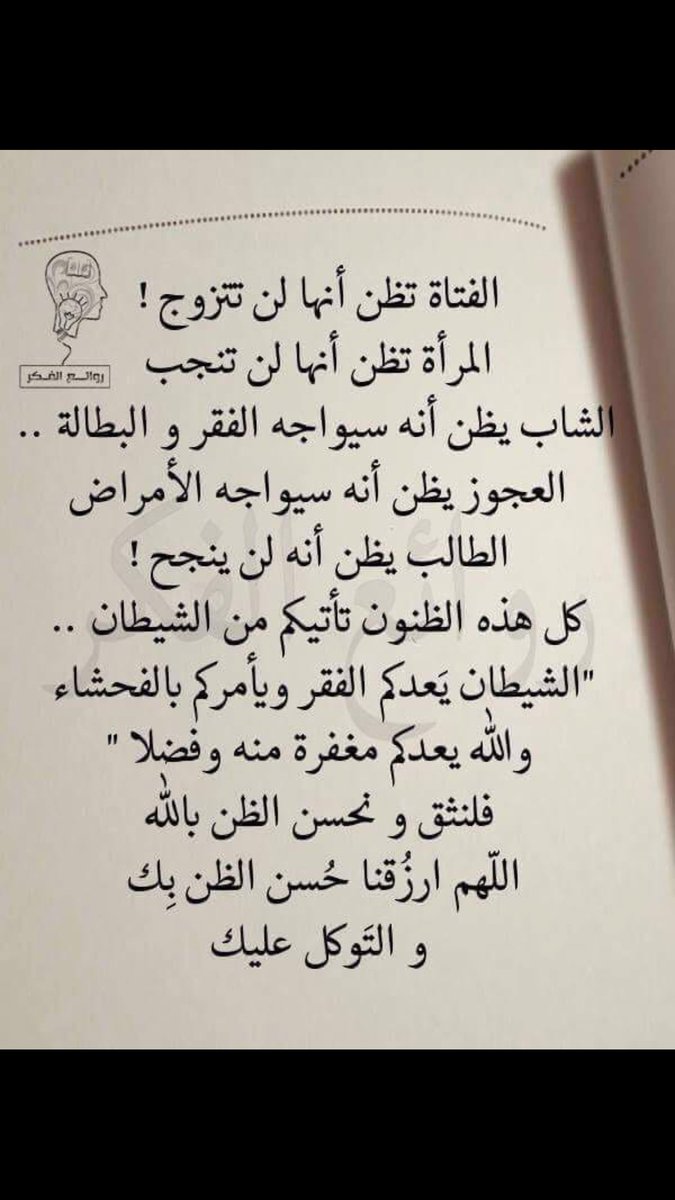 الفتاة تظن أنها لن تتزوج !
المرأة تظن أنها لن تنجب
الشاب يظن أنه سيواجه الفقر و البطالة ..
العجوز يظن أنه سيواجه الأمراض
الطالب يظن أنه لن ينجح !
كل هذه الظنون تأتيكم من الشيطان ..
"الشيطان يَعدكم الفقر ويأمركم بالفحشاء
والله يعدكم مغفرة منه وفضلا "
فلنثق و نحسن الظن بالله
اللّهم ارزُقنا حُسن الظن بِك
و التَوكل عليك
روائع الفكر
روائع الفكر